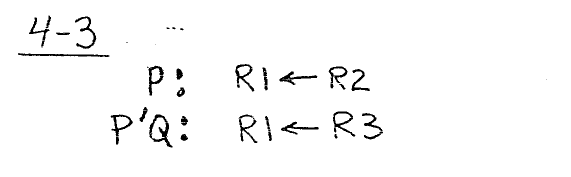 4-3
P: R1 ← R2
P'Q: R1 ← R3